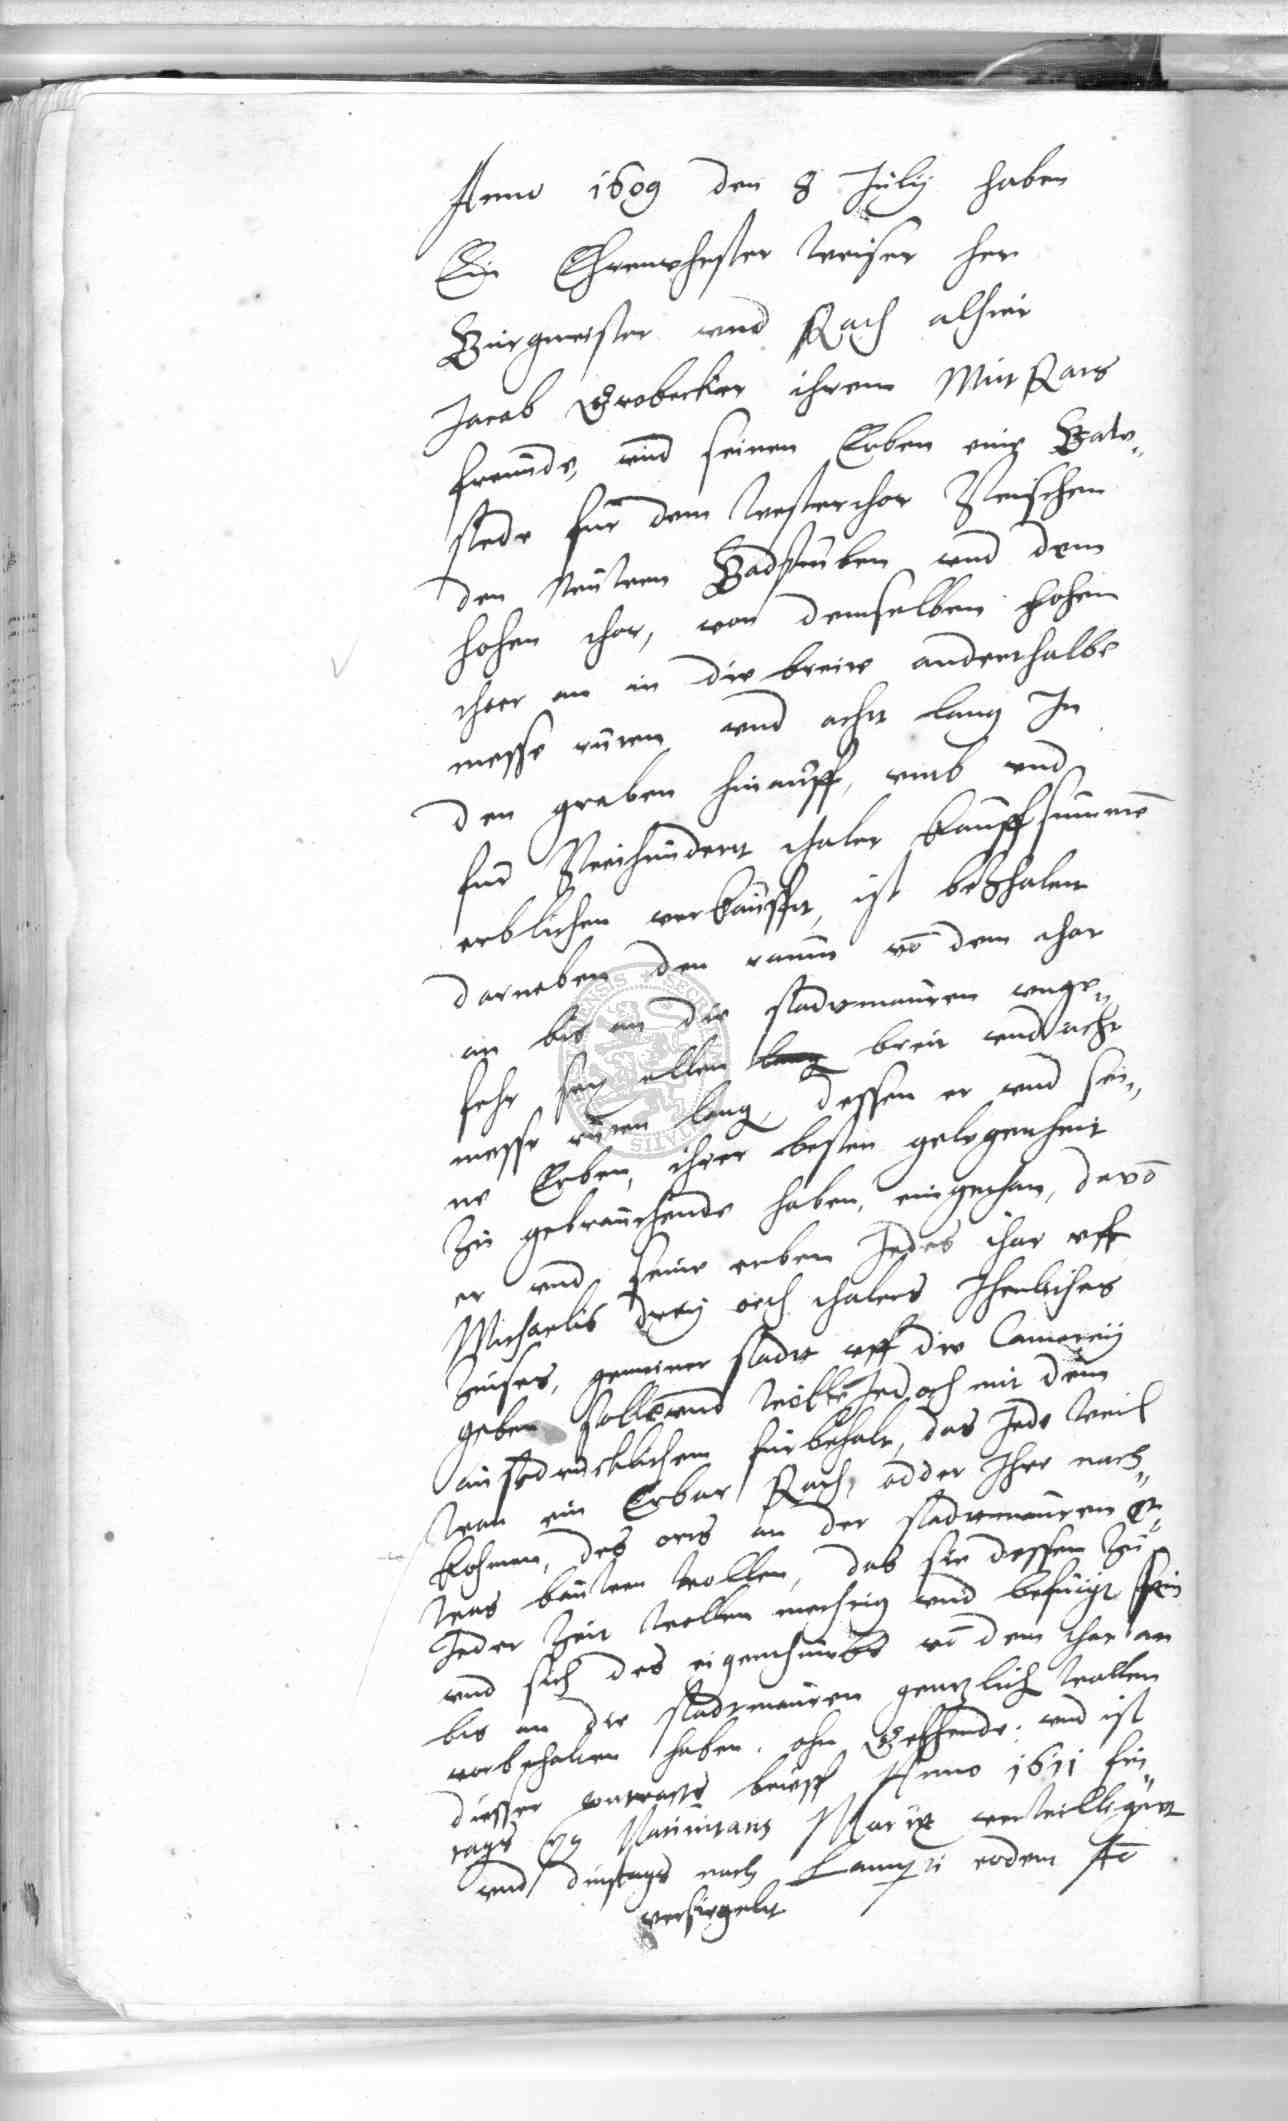 Anno 1609 den 8 Julij haben
Ein Ehrenvhester Weiser her
Burgmeister vnd Rath alhier
Jacob Grobecker ihrem Mit Rats
freunde, vnd seinen Erben eine Baw„
stede fur dem Westerthor Zwischen
den neuwen Badstuben vnd dem
hohen thor, von demselben hohen
thor an in die breite anderthalbe
messe ruten vnd acht lang In
den graben hinauff, vmb vnd
fur Zweihundert thaler kauffsumme
erblichen verkaufft, ist bezhalett
darneben den raum vō dem thor
an bis an die stadtmauren vnge„
fehr sex ellen breit vnd acht
messe ruten lang, dessen er vnd sei„
ne Erben, ihrer besten gelegenheit
zu gebrauchende haben, eingethan, davō
er vnd seine erben Jedes ihar vff
Michaelis drey orth thalers Iherliches
Zinses, gemeiner stadt vff die Camereij
geben solle vnd wolle Jedoch mit dem
ausdrucklichem furbehalt, das Jede weil
wan ein Erbar Rath, adder Ihre nach„
kohmen, des orts an der stadtmauren et„
was bauwen wollen, das sie dessen zu
Jeder Zeit wollen mechtig vnd befuigt sein
vnd sich des eigenthumbs vō dem thor an
bis an die stadtmauren gentzlich wollen
vorbehalten haben. ohn geffehrde. vnd ist
diesser contracts brieff Anno 1611 frei
tags Natiuitatis Mariæ verwilligtt
vnd dinstags nach Lamperti eodem Aō
versiegelt